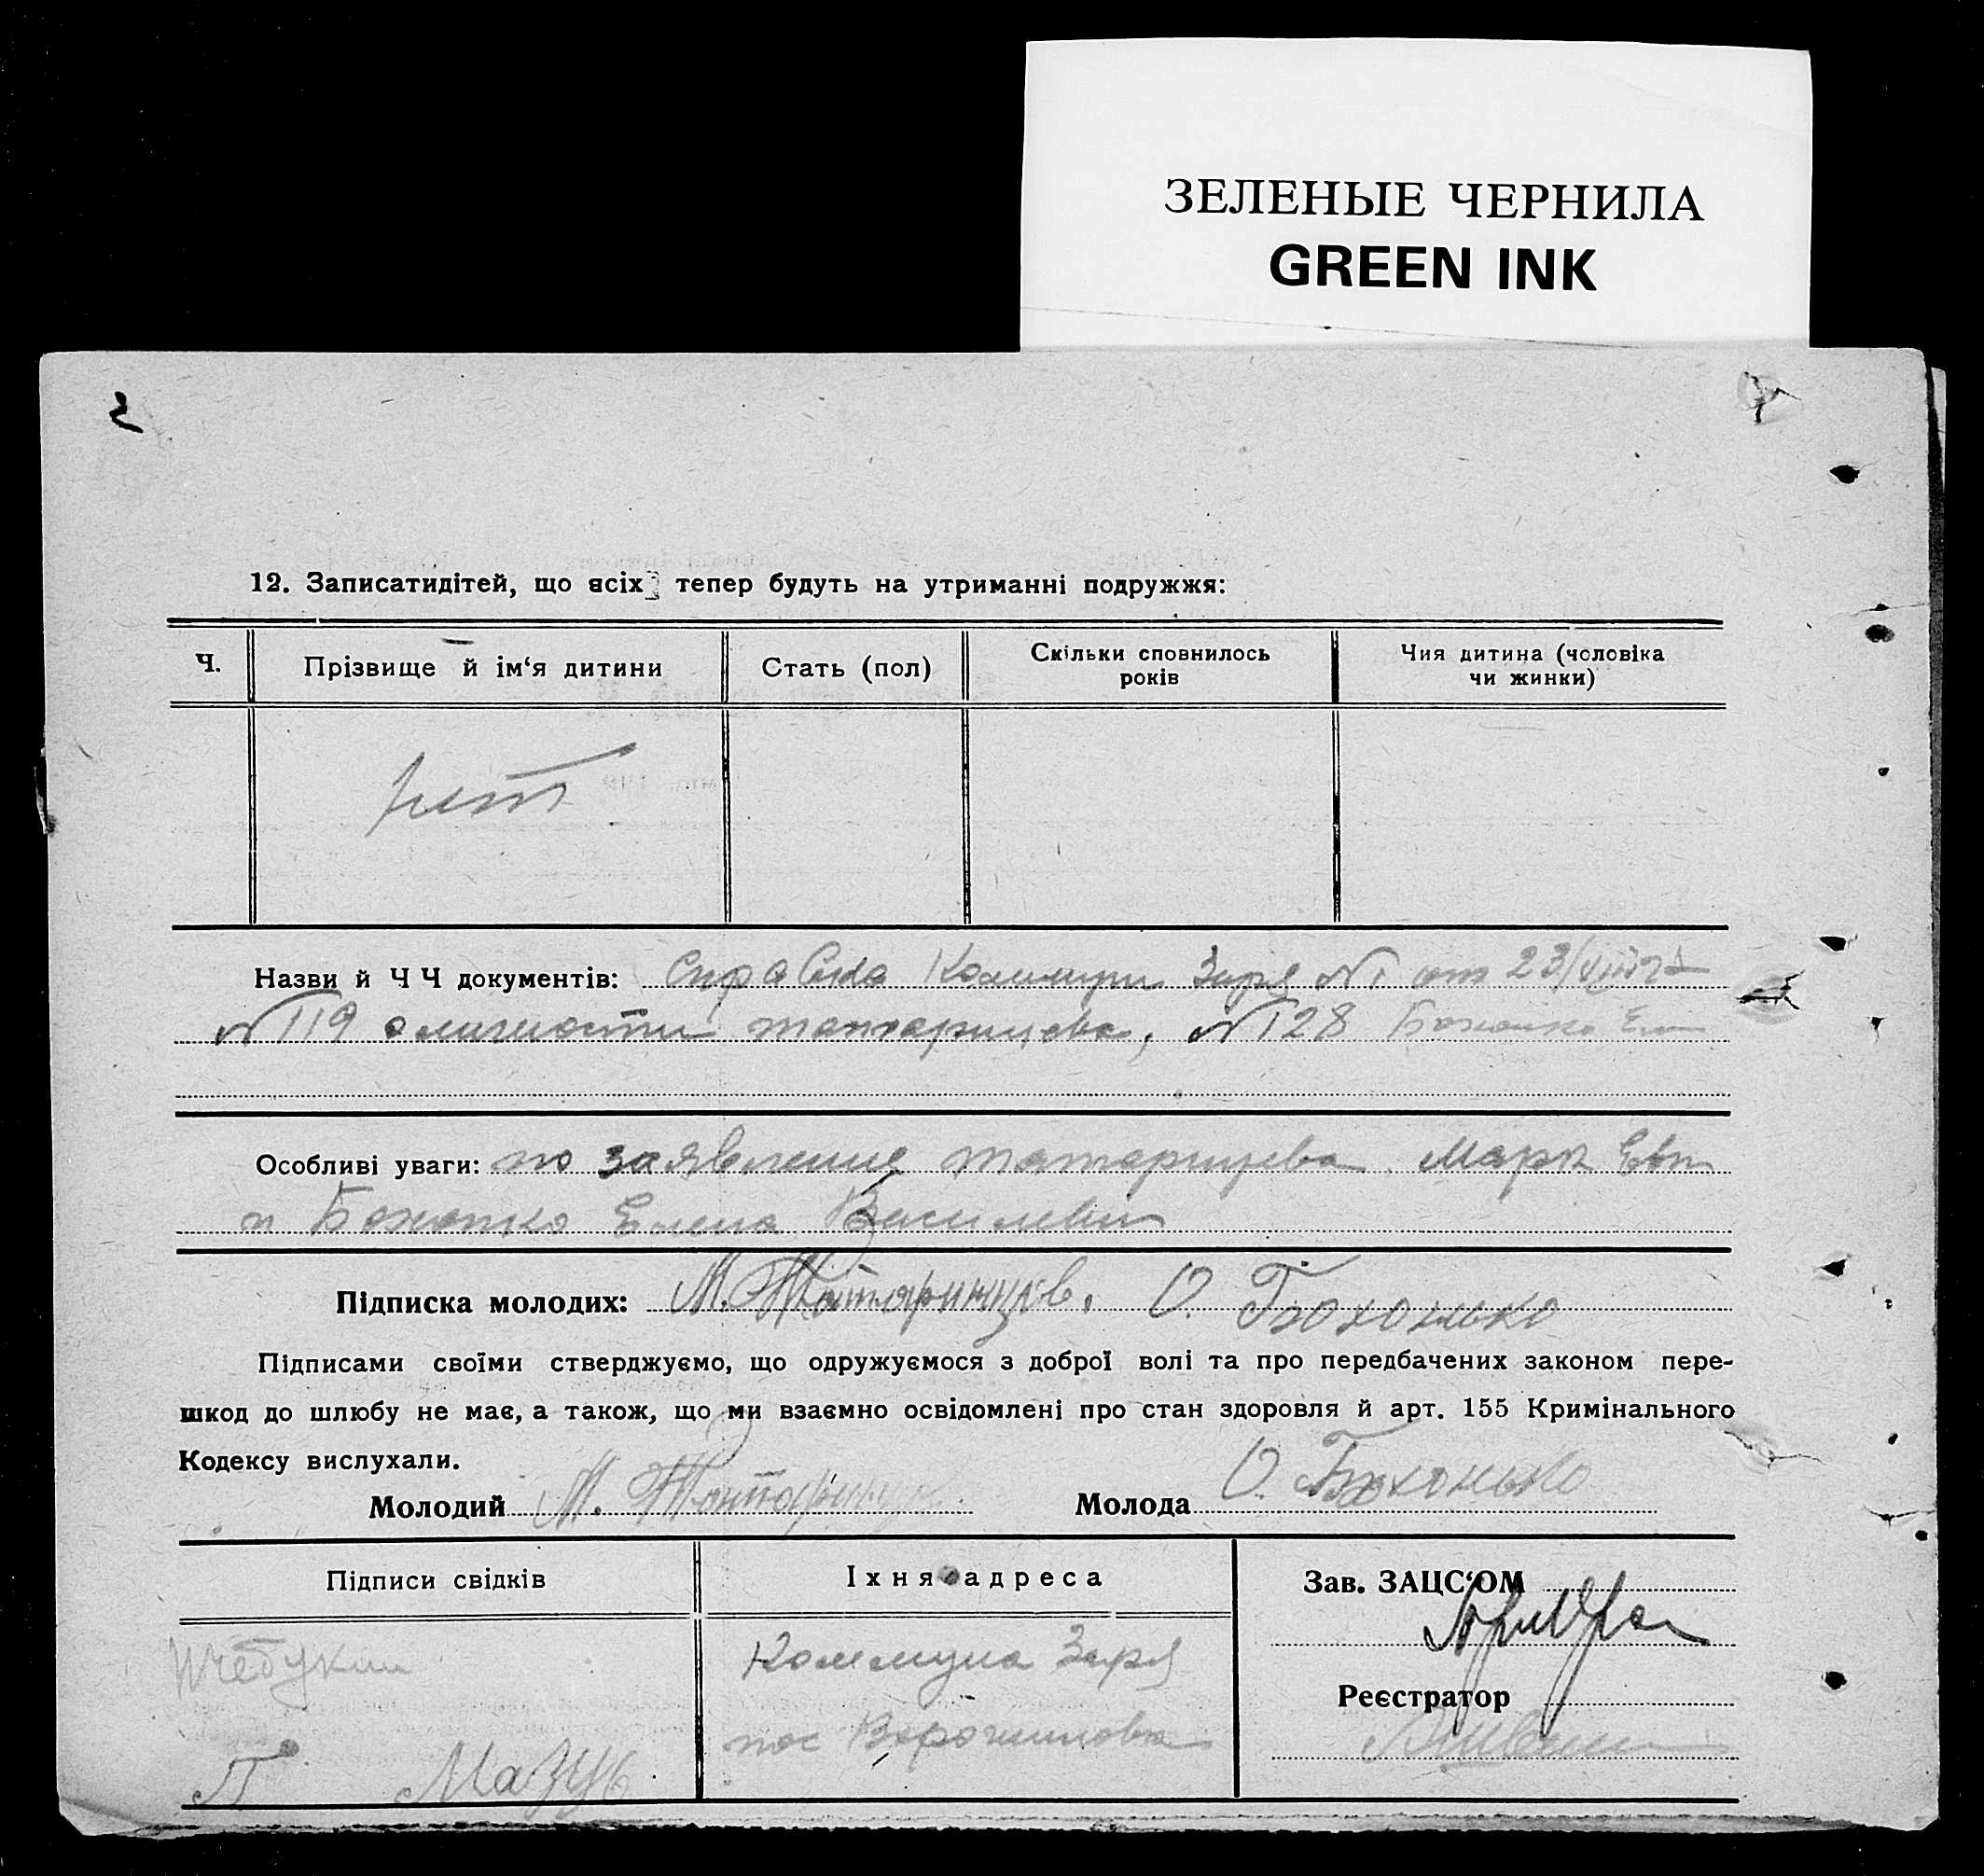 ЗЕЛЕНЫЕ ЧЕРНИЛА
GREEN INK
2
12. Записатидітей, що всіх тепер будуть на утриманні подружжя:
Ч.
Прізвище й ім‘я дитини
Стать (пол)
Скільки сповнилось
років
Чия дитина (чоловіка
чи жинки)
нет
Назви й Ч Ч документів: Справка Коммуны Заря №1 от 23/VIII
№ 119 о личности татаринцева, № 128 Бохонко Ел
Особливі уваги: по заявление татаринцева Марк Евт
и Бохонко Елена Василевн
Підписка молодих: М. Татаринцов. О. Бохонько
Підписами своїми стверджуємо, що одружуємося з доброї волі та про передбачених законом пере-
шкод до шлюбу не має, а також, що ми взаємно освідомлені про стан здоровля й арт. 155 Кримінального
Кодексу вислухали.
Молодий М. Татаринцов Молода О. Бохонько
Підписи свідків
Їхня адреса
Зав. ЗАЦС‘ОМ
Коммуна Заря
Реєстратор
пос Ворошиловка
П Мазуь